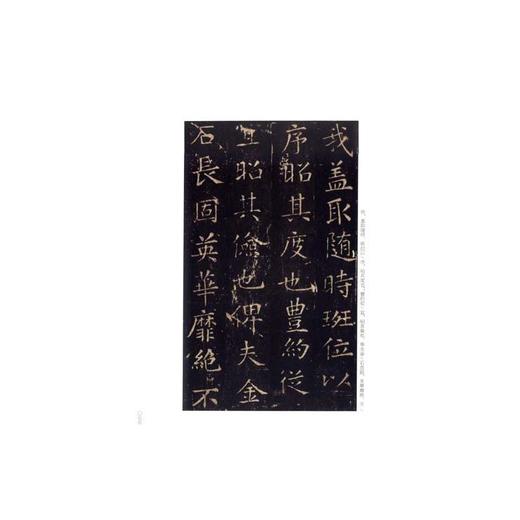 我盖取随時班位以
序昭其度也豊約從
宜昭其儉也俾夫金
石長固英華靡絕不